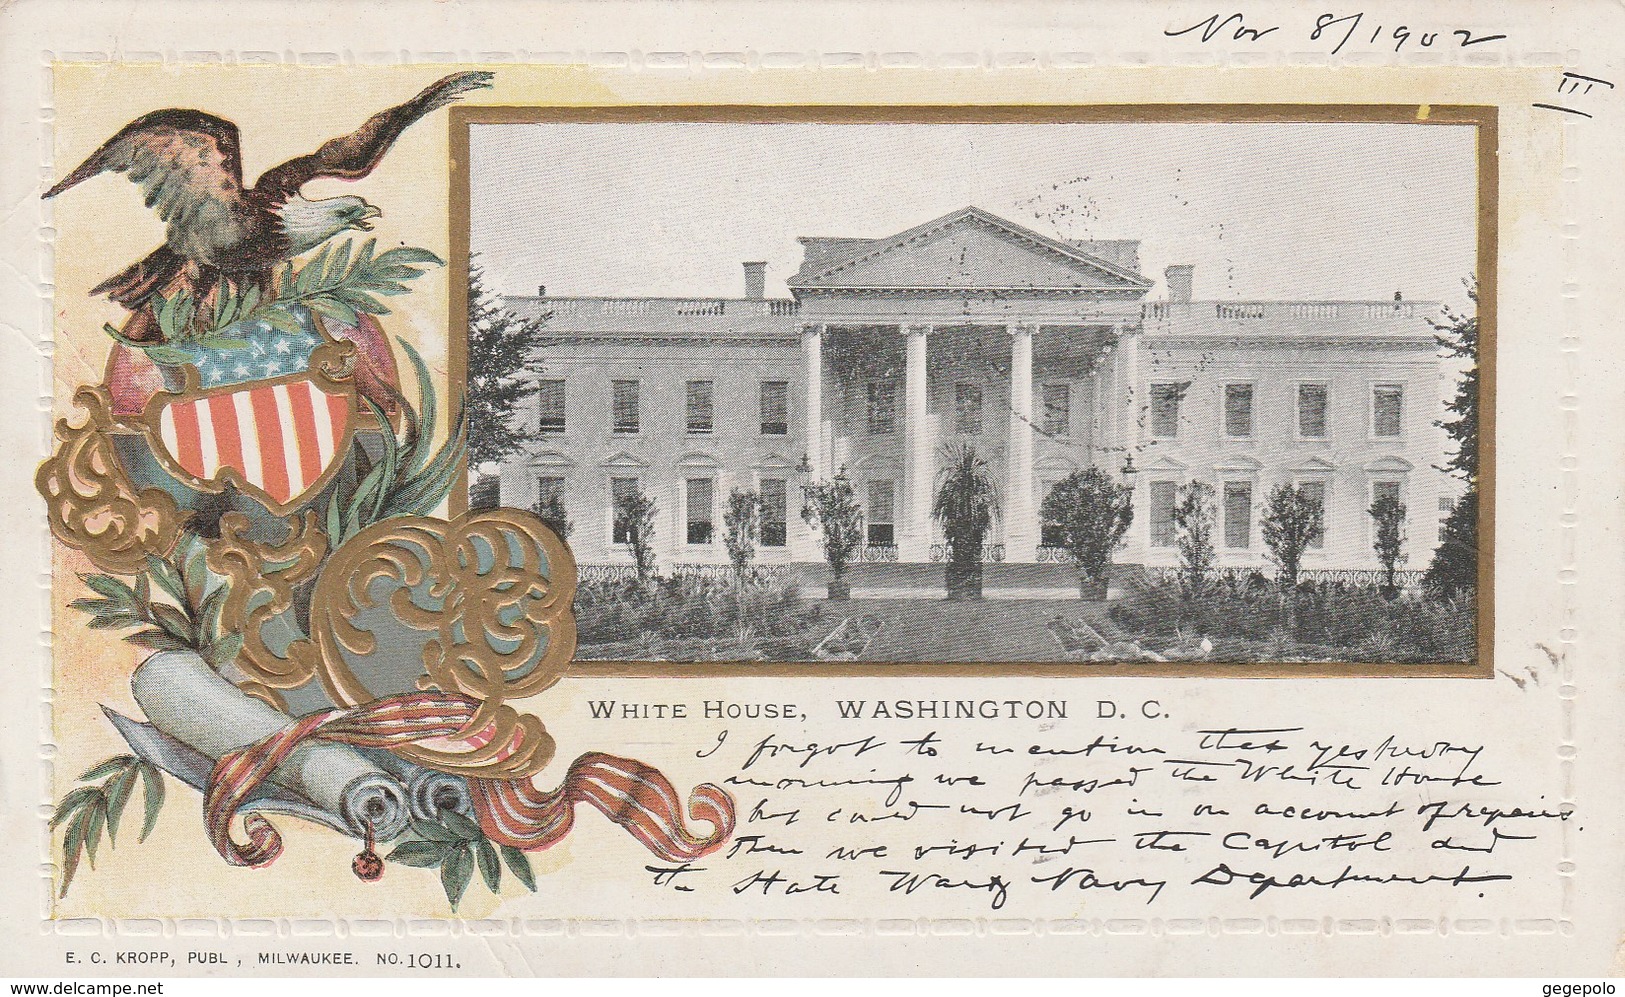 Nov 8/1902
III
WHITE HOUSE, WASHINGTON D. C.
I forgot to mention that yesterday
morning we passed the White House
but could not go in on account of repairs.
Then we visited the Capitol and
the State War & Navy Department.
E. C. KROPP, PUBL , MILWAUKEE. NO. 1011.
www.delcampe.net
gegepolo